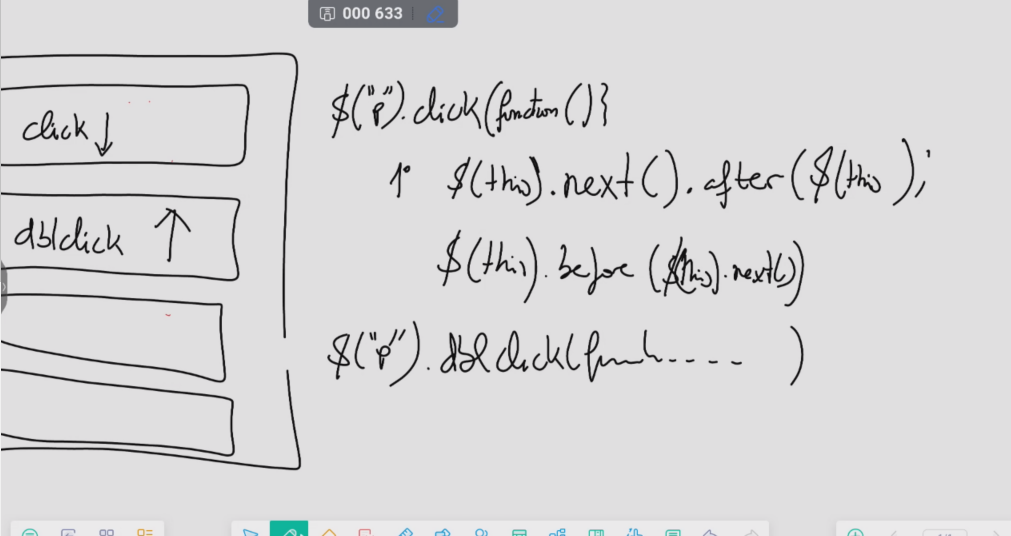 000 633
click ↓
dblclick ↑
$("p").click(function(){
1° $(this).next().after($(this);
$(this).before($(this).next())
$("p").dblclick(funh.... )